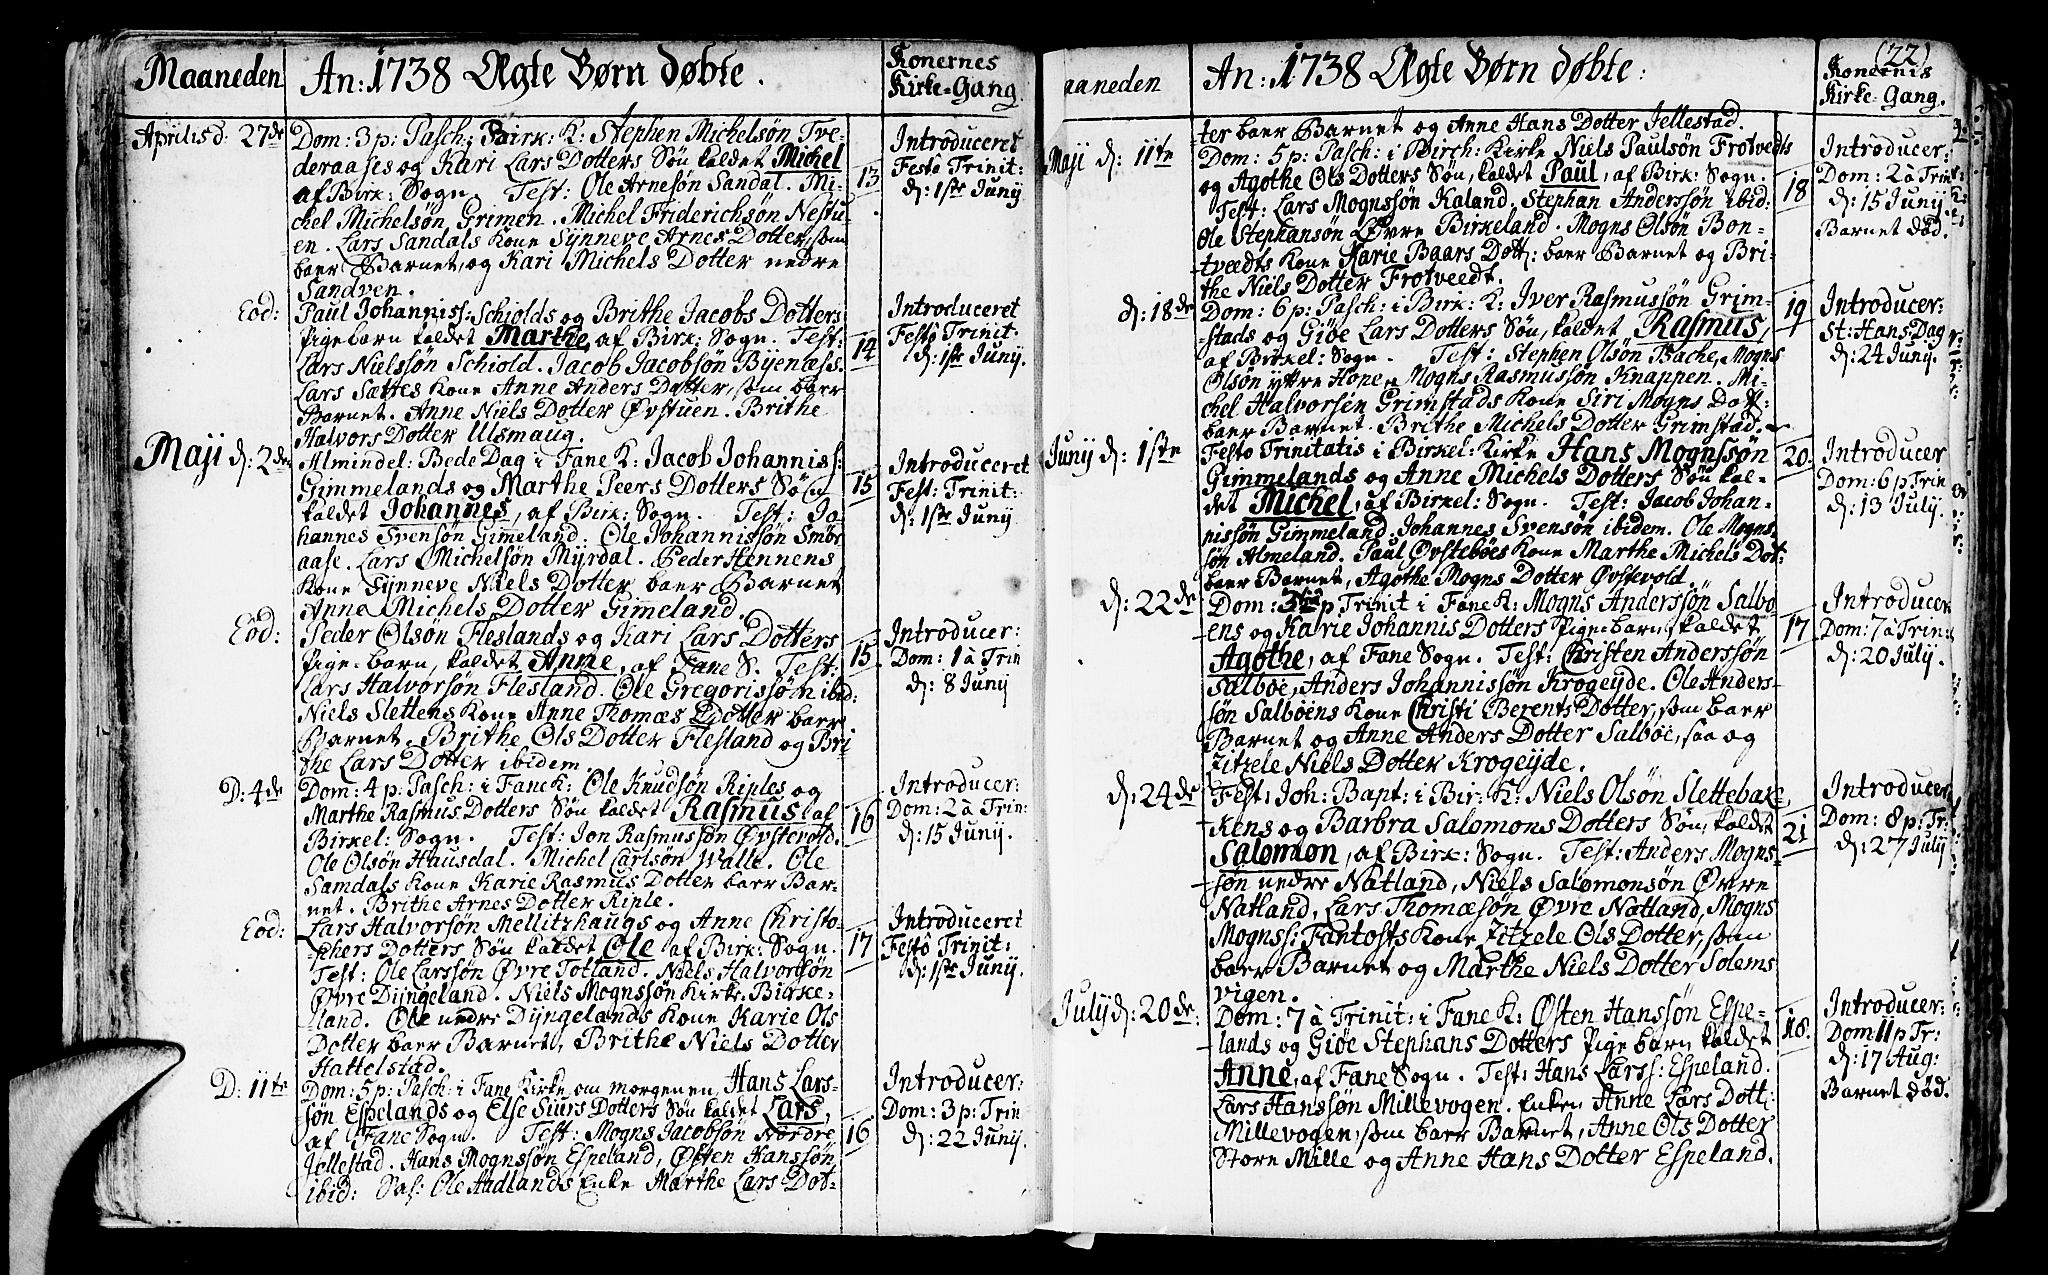 Maaneden
An: 1738 Ægte Børn døbte.
Konernes
Kirke-Gang.
Aprilis d: 27de
Dom: 3 p: Pasch: Birk: K: Stephen Michelsøn Tve-
deraases og Kari Lars Dotters Søn kaldet Michel
af Birk: Sogn. Test: Ole Arnesøn Sandal. Mi-
chel Michelsøn Grimen. Michel Friderichsøn Nestu-
en. Lars Sandals Kone Synneve Arnes Dotter, som
baer Barnet, og Kari Michels Dotter nedre
Sandven.
13
Introduceret
Festo Trinit:
d: 1ste Junij
Eod:
Paul Johanniss: Schiolds og Brithe Jacobs Dotters
Pigebarn kaldet Marthe, af Birk: Sogn. Test:
Lars Nielssøn Schiold. Jacob Jacobsøn Byenæss.
Lars Sættes Kone Anne Anders Dotter, som baer
Barnet. Anne Niels Dotter Øvstuen. Brithe
Halvors Dotter Ulsmaug.
14
Introduceret
Festo Trinit:
d: 1ste Junij.
Maji d: 2de
Almindel: Bede Dag i Fane K: Jacob Johanniss:
Gimmelands og Marthe Peers Dotters Søn
kaldet Johannes, af Birk: Sogn. Test: Jo-
hannes Svensøn Gimeland. Ole Johannissøn Smør-
aase. Lars Michelsøn Myrdal. Peder Hennens
Kone Synneve Niels Dotter baer Barnet
Anne Michels Dotter Gimeland.
15
Introduceret
Fest: Trinit:
d: 1ste Junij
Eod:
Peder Olsøn Fleslands og Kari Lars Dotters
Pige-barn, kaldet Anne, af Fane S. Test:
Lars Halvorsøn Flesland. Ole Gregorissøn ibid:
Niels Slettens Kone Anne Thomæs Dotter baer
Barnet. Brithe Ols Dotter Flesland og Bri
the Lars Dotter ibidem.
15
Introducer:
Dom: 1 à Trin
d: 8 Junij
D: 4de
Dom: 4 p: Pasch: i Fane K: Ole Knudsøn Riples og
Marthe Rasmus Dotters Søn kaldet Rasmus af
Birkel: Sogn. Test: Jon Rasmussøn Øvstevold.
Ole Olsøn Hausdal. Michel Carlsøn Walle. Ole
Samdals Kone Karie Rasmus Dotter baer Bar-
net. Brithe Arnes Dotter Riple.
16
Introducer:
Dom: 2 à Trin:
d: 15 Junij.
Eod:
Lars Halvorsøn Mellitzhaugs og Anne Christo-
phers Dotters Søn kaldet Ole af Birk: Sogn.
Test: Ole Larssøn Øvre Totland. Niels Halvorssøn
Øvre Dyngeland. Niels Mognssøn Kirke-Birke-
land. Ole nedre Dyngelands Kone Karie Ols
Dotter baer Barnet, Brithe Niels Dotter
Hattelstad.
17
Introduceret
Festo Trinit:
d: 1ste Junij.
D: 11te
Dom: 5 p: Pasch: i Fane Kirke om morgenen, Hans Lars-
søn Espelands og Else Siurs Dotters Søn kaldet Lars,
af Fane Sogn. Test: Mogns Jacobsøn Nordre
Jellestad. Hans Mognssøn Espeland, Østen Hanssøn
ibid: Sal: Ole Hadlands Enke Marthe Lars Dot-
16
Introducer:
Dom: 3 p: Trin
d: 22 Junij.
(22)
aaneden
An: 1738 Ægte Børn døbte:
Konernis
Kirke-Gang.
ter baer Barnet og Anne Hans Dotter Jellestad.
Maji d: 11te
Dom: 5 p: Pasch: i Birch: Kirke Niels Paulsøn Frotvedts
og Agothe Ols Dotters Søn, kaldet Paul, af Birk: Sogn.
Test: Lars Mognssøn Kaland, Stephan Anderssøn ibid:
Ole Stephansøn Øvre Birkeland. Mogns Olsøn Bon-
tvædts Kone Karie Baars Dott: baer Barnet og Bri-
the Niels Dotter Frotveedt.
18
Introducer:
Dom: 2 à Trin
d: 15 Junij.
Barnet död.
d: 18de
Dom: 6 p: Pasch: i Birk: K: Iver Rasmussøn Grim-
stads og Giöe Lars Dotters Søn, kaldet Rasmus,
af Birkel: Sogn. Test: Stephen Olsøn Bache, Mogns
Olsøn yttre Hope, Mogns Rasmussøn Knappen. Mi-
chel Halvorsen Grimstads Kone Siri Mogns Dott:
baer Barnet. Brithe Michels Dotter Grimstad.
19
Introducer:
St: Hans Dag
d: 24 Junij.
Junij d: 1ste
Festo Trinitatis i Birkel: Kirke Hans Mognssøn
Gimmelands og Anne Michels Dotters Søn kal-
det Michel, af Birkel: Sogn. Test: Jacob Johan-
nissøn Gimmeland. Johannes Svensøn ibidem. Ole Mogns
søn Almeland. Paul Øvstebøes Kone Marthe Michels Dot:
baer Barnet, Agothe Mogns Dotter Øvstevold.
20
Introducer
Dom: 6 p Trin
d: 13 Julij.
d: 22de
Dom: 3tia p Trinit i Fane K: Mogns Anderssøn Salbo-
ens og Karie Johannis Dotters Pige-barn, kaldet
Agothe, af Fane Sogn. Test: Christen Anderssøn
Salböe, Anders Johannissøn Krogeyde. Ole Anders-
søn Salböens Kone Christi Berents Dotter, som baer
Barnet og Anne Anders Dotter Salböe, saa og
Zitzele Niels Dotter Krogeyde.
17
Introducer
Dom: 7 à Trin:
d: 20 Julij.
d: 24de
Fest: Joh: Bapt: i Bir: K: Niels Olsøn Slettebak-
kens og Barbra Salomons Dotters Søn, kaldet
Salomon, af Birk: Sogn. Test: Anders Mogns-
søn nedre Natland, Niels Salomonsøn Øvre
Natland, Lars Thomæsøn Øvre Natland, Mogns
Mognss: Fantofts Kone Zitzele Ols Dotter, som
baer Barnet og Marthe Niels Dotter Solems
vigen.
21
Introducer
Dom: 8 p: Tr:
d: 27 Julij
Julij d: 20de:
Dom: 7 à Trinit: i Fane K: Østen Hanssøn Espe-
lands og Giöe Stephans Dotters Pige barn kaldet
Anne, af Fane Sogn. Test: Hans Larss: Espeland.
Lars Hanssøn Millevogen. Enken Anne Lars Dott:
Millevogen, som baer Barnet, Anne Ols Dotter
Store Mille og Anne Hans Dotter Espeland.
18.
Introducer:
Dom 11 p Tr:
d: 17 Aug:
Barnet död.